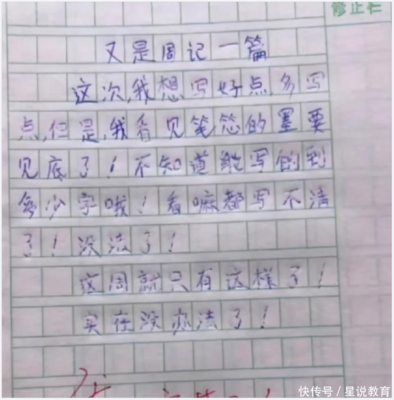 修正栏
又是周记一篇
这次,我想写好点多写
点,但是,我看见笔芯的墨要
见底了!不知道能写的到
多少字哦!看嘛都写不清
了!没法了!
这周就只有这样了!
实在没办法了!
快传号/星说教育